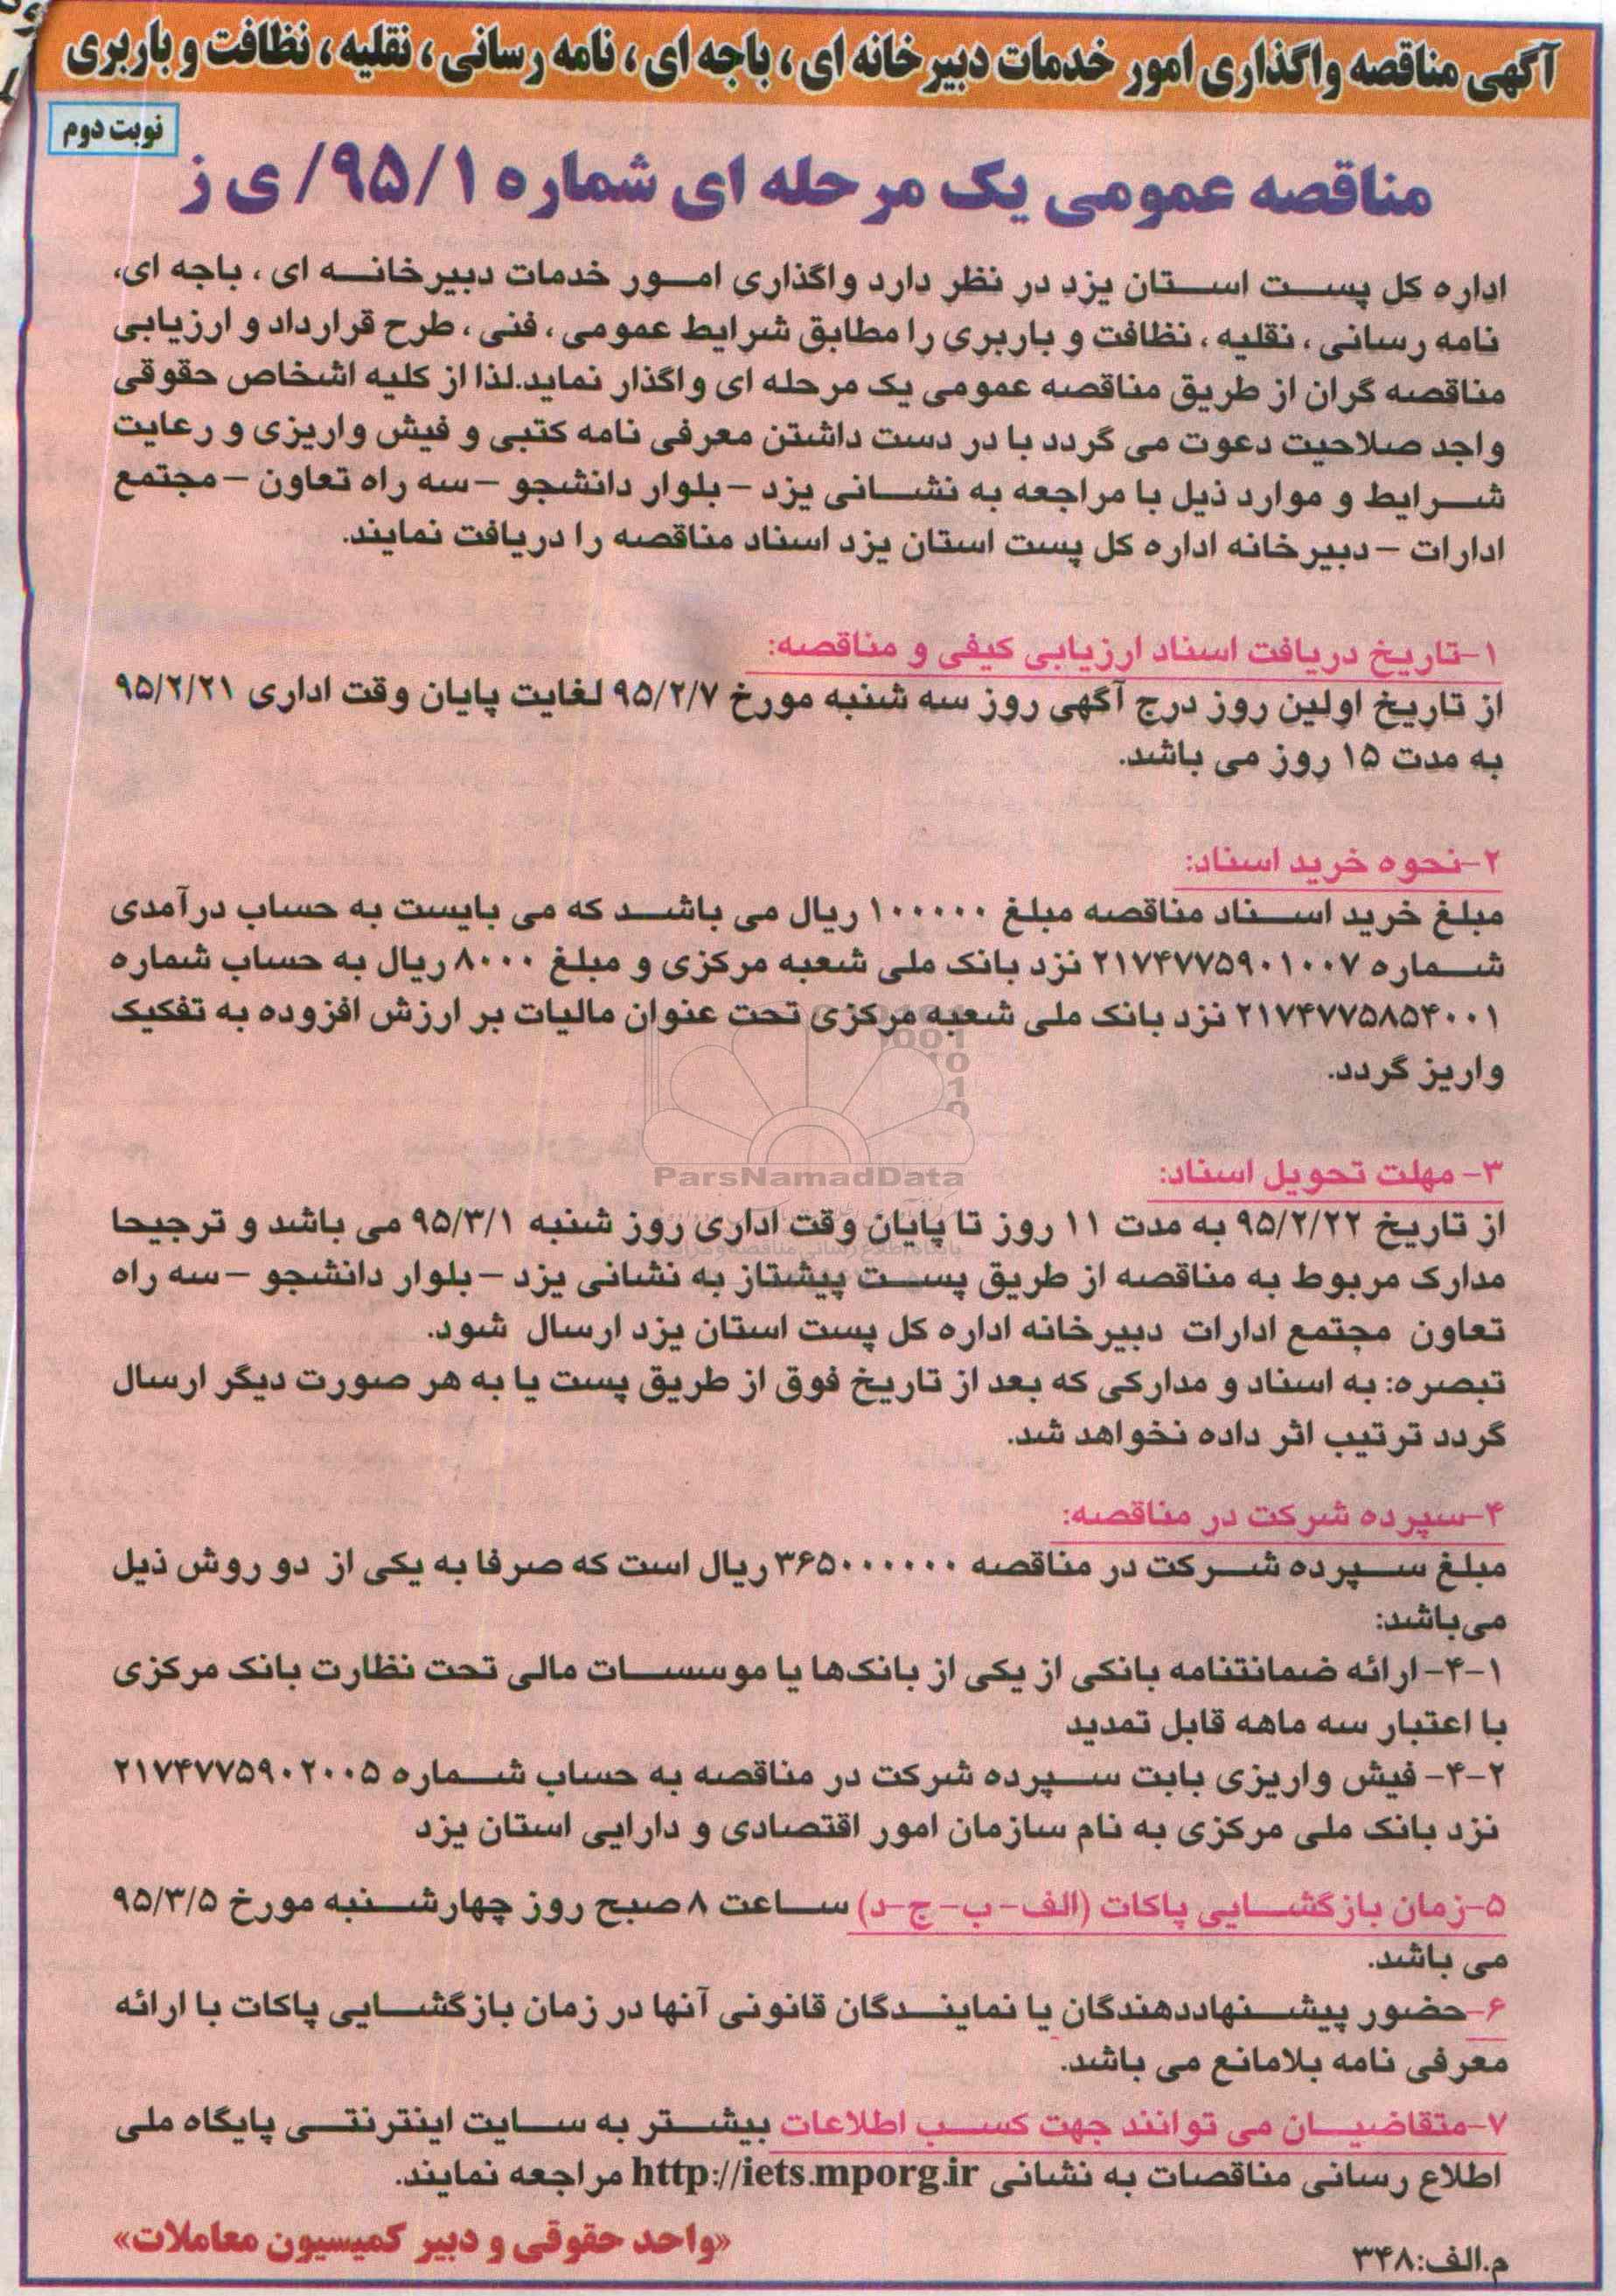 آگهی مناقصه واگذاری امور خدمات دبیرخانه ای ، باجه ای ، نامه رسانی ، نقلیه ، نظافت و باربری
نوبت دوم
مناقصه عمومی یک مرحله ای شماره ۹۵/۱/ ی ز
اداره کل پست استان یزد در نظر دارد واگذاری امور خدمات دبیرخانه ای ، باجه ای،
نامه رسانی ، نقلیه ، نظافت و باربری را مطابق شرایط عمومی ، فنی ، طرح قرارداد و ارزیابی
مناقصه گران از طریق مناقصه عمومی یک مرحله ای واگذار نماید.لذا از کلیه اشخاص حقوقی
واجد صلاحیت دعوت می گردد با در دست داشتن معرفی نامه کتبی و فیش واریزی و رعایت
شرایط و موارد ذیل با مراجعه به نشانی یزد –بلوار دانشجو –سه راه تعاون –مجتمع
ادارات –دبیرخانه اداره کل پست استان یزد اسناد مناقصه را دریافت نمایند.
۱-تاریخ دریافت اسناد ارزیابی کیفی و مناقصه:
از تاریخ اولین روز درج آگهی روز سه شنبه مورخ ۹۵/۲/۷ لغایت پایان وقت اداری ۹۵/۲/۲۱
به مدت ۱۵ روز می باشد.
۲-نحوه خرید اسناد:
مبلغ خرید اسناد مناقصه مبلغ ۱۰۰۰۰۰ ریال می باشد که می بایست به حساب درآمدی
شماره ۲۱۷۴۷۷۵۹۰۱۰۰۷ نزد بانک ملی شعبه مرکزی و مبلغ ۸۰۰۰ ریال به حساب شماره
۲۱۷۴۷۷۵۸۵۴۰۰۱ نزد بانک ملی شعبه مرکزی تحت عنوان مالیات بر ارزش افزوده به تفکیک
واریز گردد.
ParsNamadData
۳- مهلت تحویل اسناد:
از تاریخ ۹۵/۲/۲۲ به مدت ۱۱ روز تا پایان وقت اداری روز شنبه ۹۵/۳/۱ می باشد و ترجیحا
پایگاه اطلاع رسانی مناقصه و مزایده
مدارک مربوط به مناقصه از طریق پست پیشتاز به نشانی یزد –بلوار دانشجو –سه راه
تعاون مجتمع ادارات دبیرخانه اداره کل پست استان یزد ارسال شود.
تبصره: به اسناد و مدارکی که بعد از تاریخ فوق از طریق پست یا به هر صورت دیگر ارسال
گردد ترتیب اثر داده نخواهد شد.
۴-سپرده شرکت در مناقصه:
مبلغ سپرده شرکت در مناقصه ۳۶۵۰۰۰۰۰۰ ریال است که صرفا به یکی از دو روش ذیل
می‌باشد:
۴-۱-ارائه ضمانتنامه بانکی از یکی از بانک‌ها یا موسسات مالی تحت نظارت بانک مرکزی
با اعتبار سه ماهه قابل تمدید
۴-۲- فیش واریزی بابت سپرده شرکت در مناقصه به حساب شماره ۲۱۷۴۷۷۵۹۰۲۰۰۵
نزد بانک ملی مرکزی به نام سازمان امور اقتصادی و دارایی استان یزد
۵-زمان بازگشایی پاکات (الف- ب- ج-د) ساعت ۸ صبح روز چهارشنبه مورخ ۹۵/۳/۵
می باشد.
۶-حضور پیشنهاددهندگان یا نمایندگان قانونی آنها در زمان بازگشایی پاکات با ارائه
معرفی نامه بلامانع می باشد.
۷-متقاضیان می توانند جهت کسب اطلاعات بیشتر به سایت اینترنتی پایگاه ملی
اطلاع رسانی مناقصات به نشانی http://iets.mporg.ir مراجعه نمایند.
«واحد حقوقی و دبیر کمیسیون معاملات»
م.الف:۳۴۸